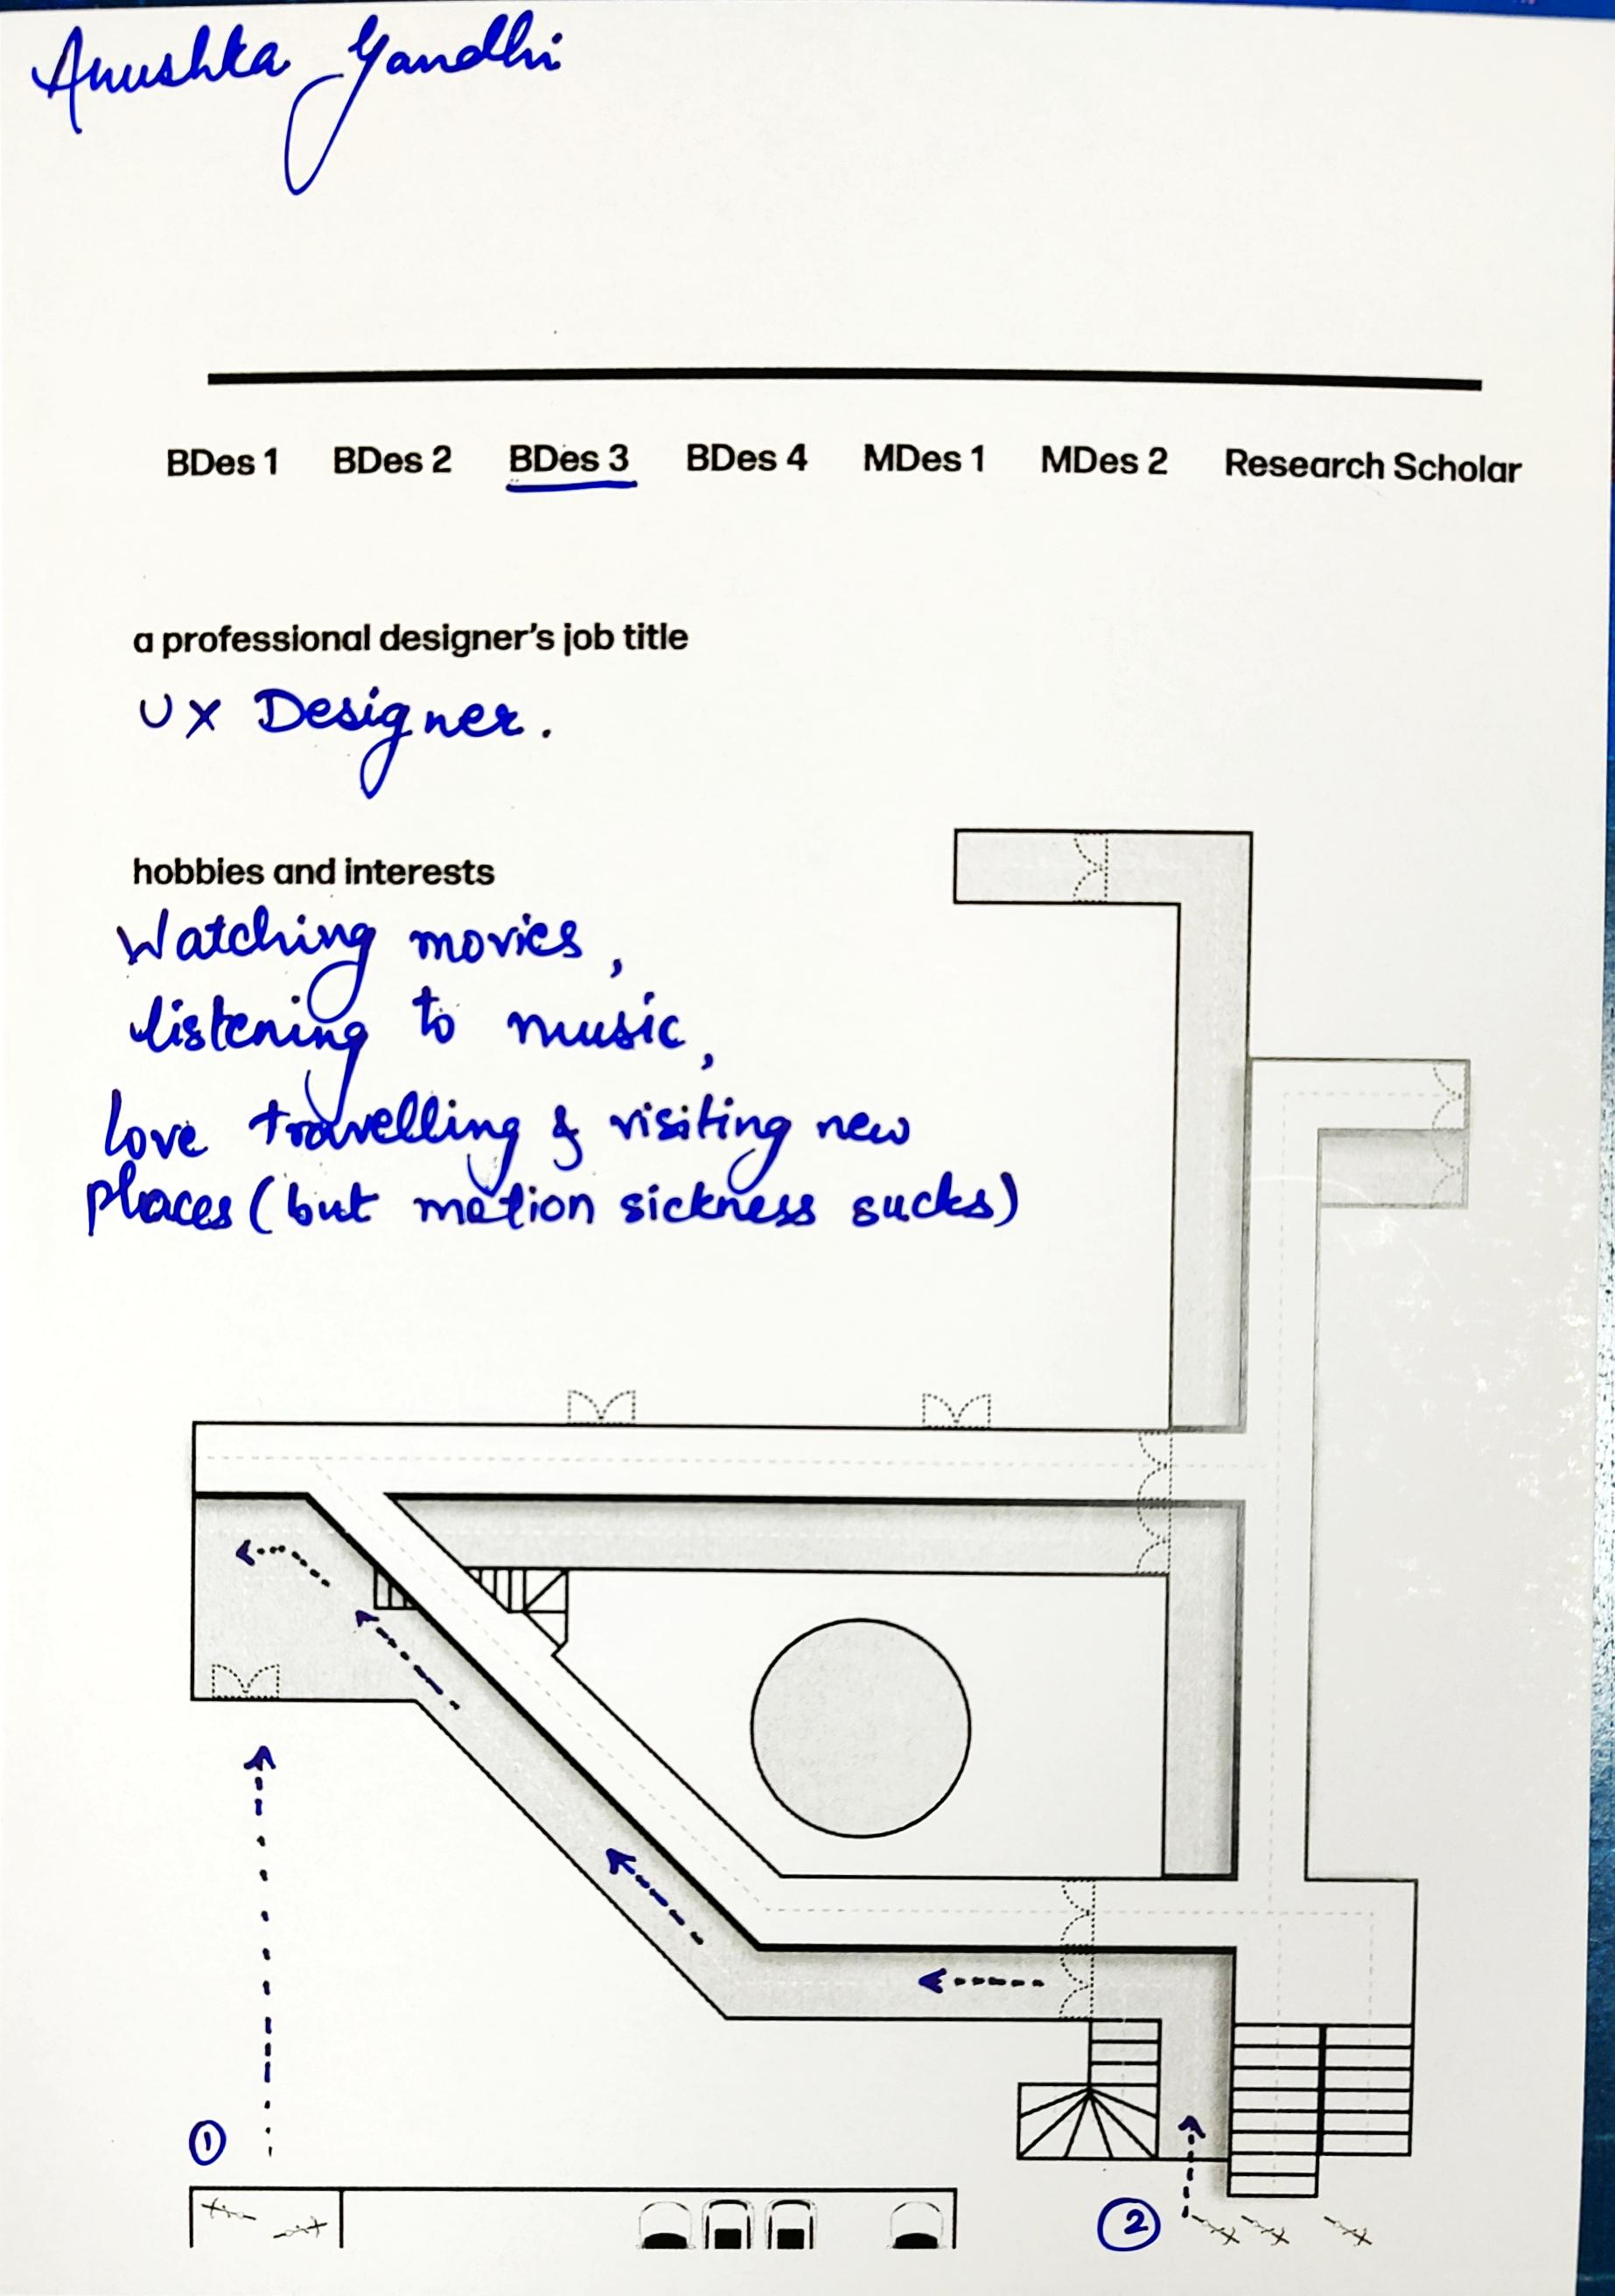 Anushka Gandhi
BDes 1 BDes 2 BDes 3 BDes 4 MDes 1 MDes 2 Research Scholar
a professional designer's job title
UX Designer.
hobbies and interests
Watching movies,
listening to music,
love travelling & visiting new
places (but motion sickness sucks)
1
2